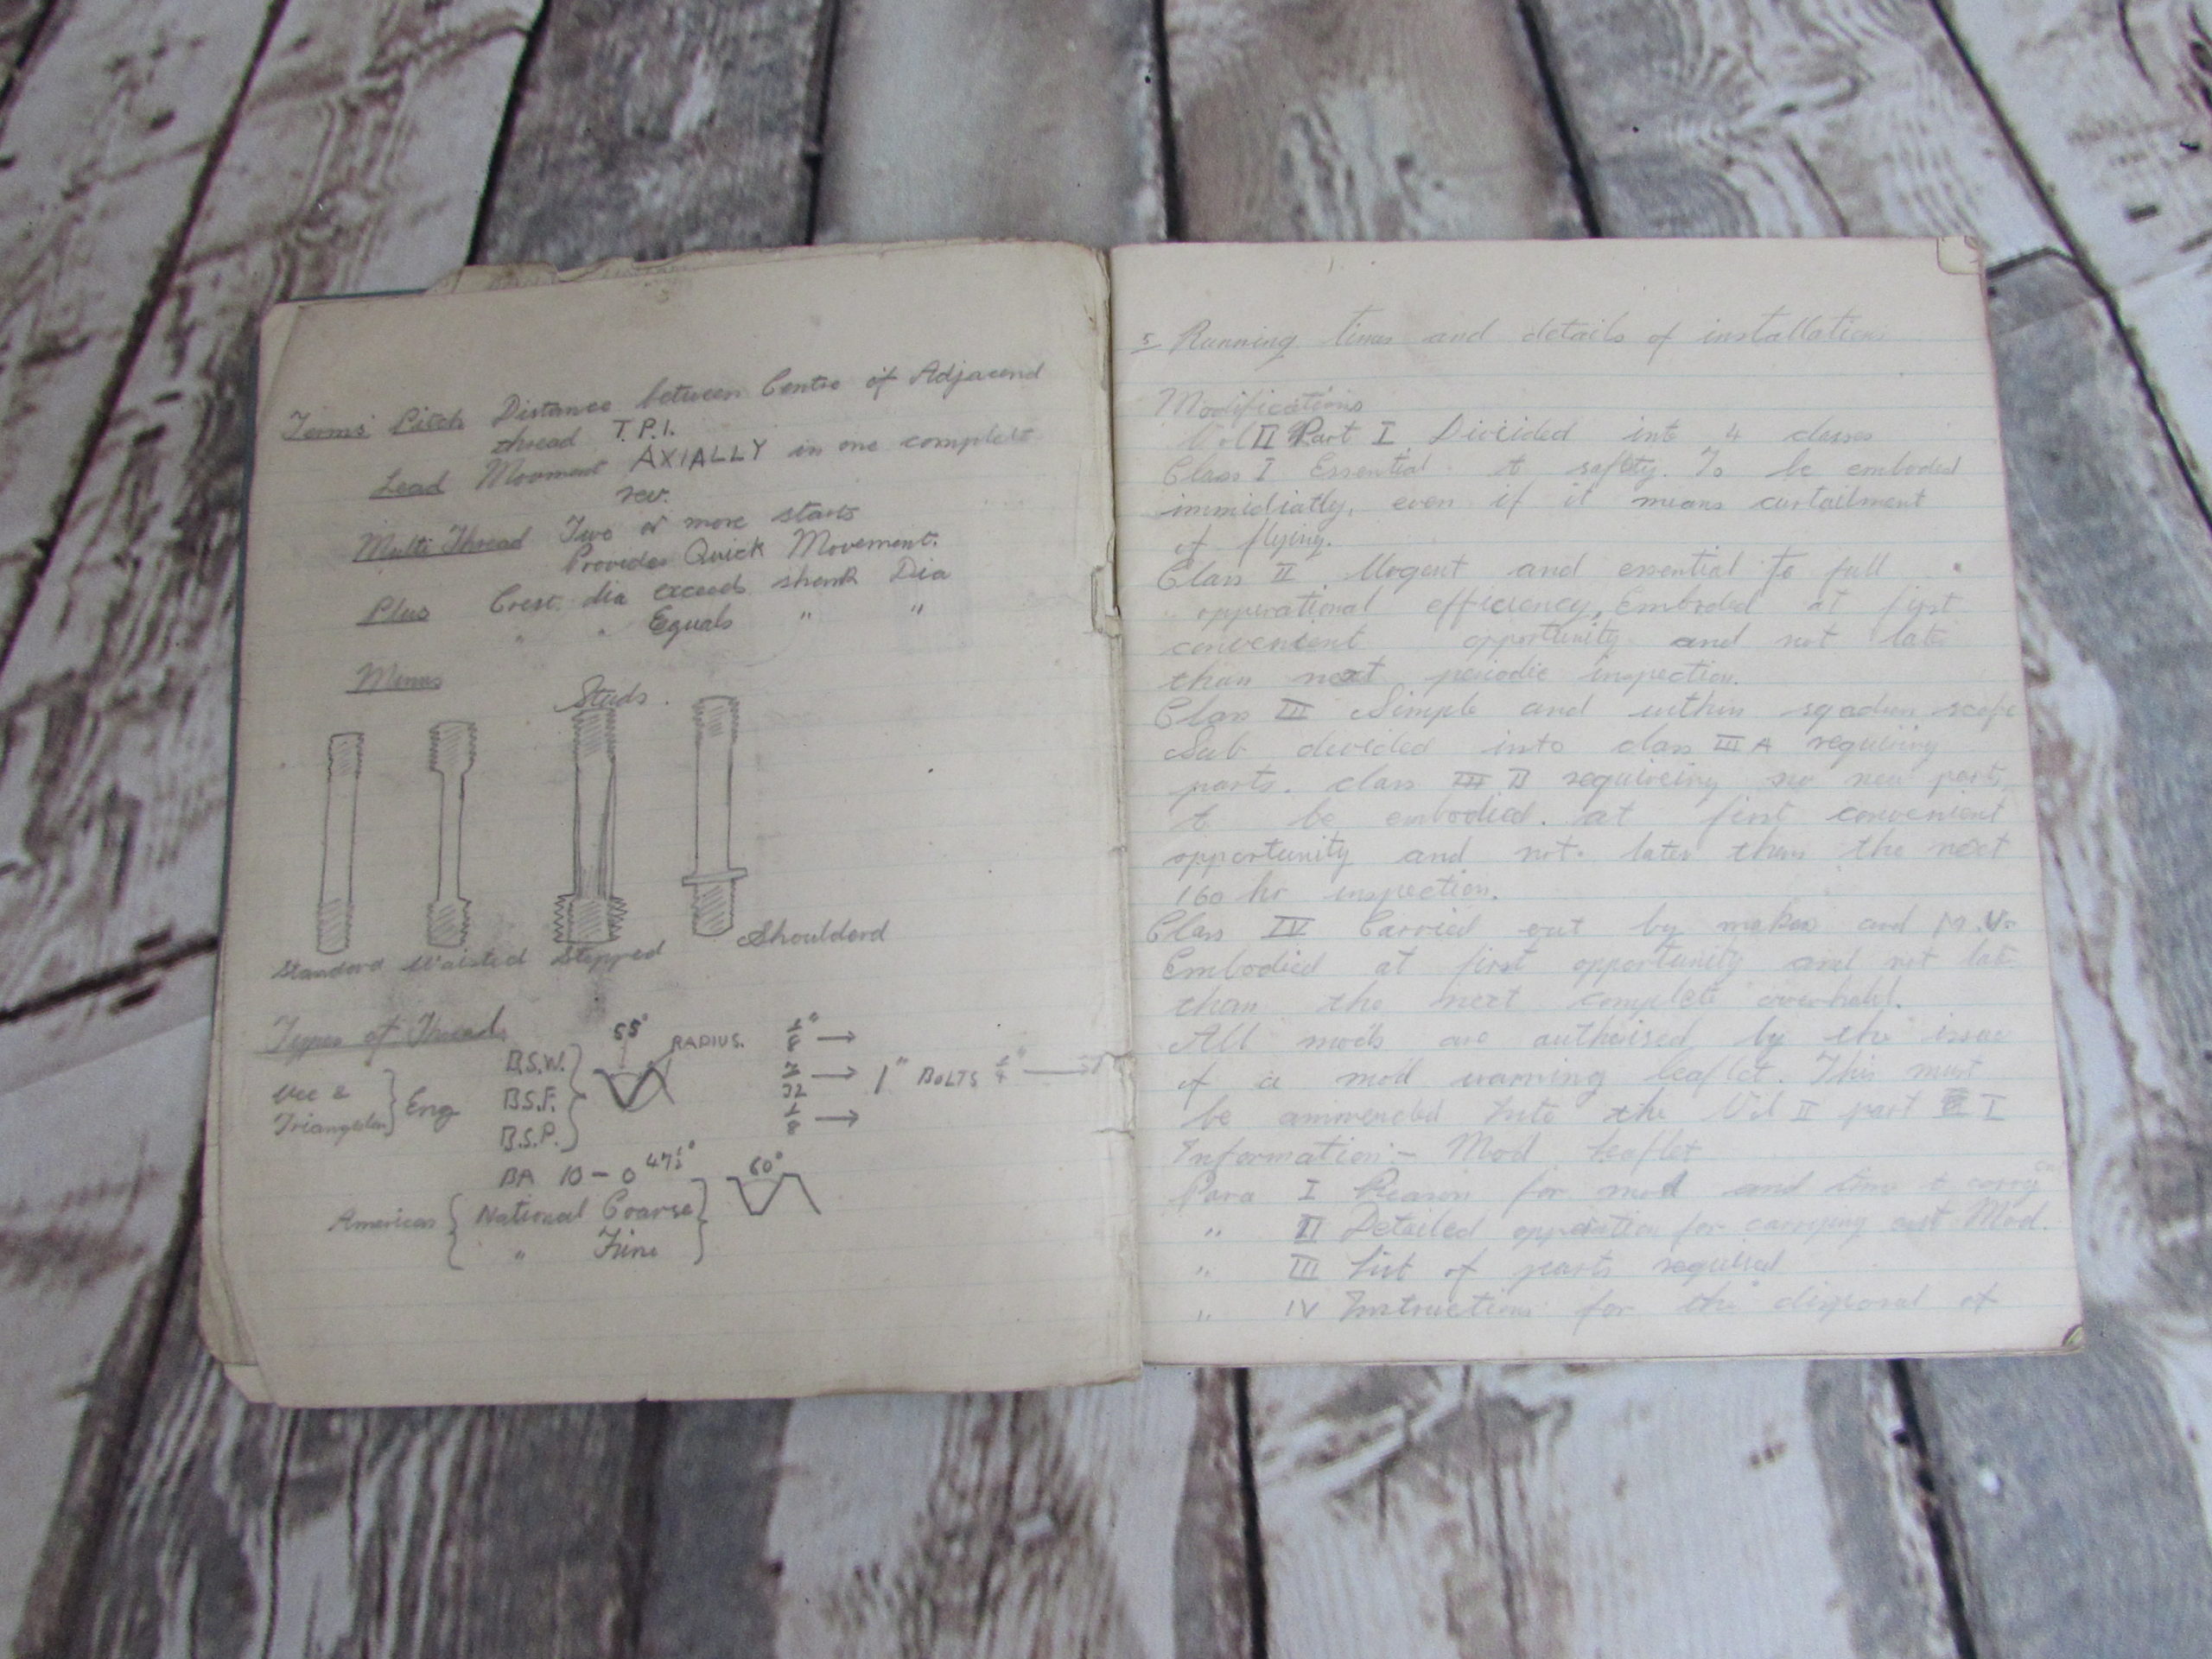 Terms Pitch Distance between Centre of Adjacend
thread T.P.I.
Lead Movment AXIALLY in one complete
rev.
Multi Thread Two or more starts
Provides Quick Movement.
Plus Crest dia exceeds shank Dia
" " Equals " "
Minus
Studs.
Standard Waisted Stepped Shoulderd
Types of Threads
Vee & Triangular } Eng
B.S.W.
B.S.F.
B.S.P.
55°
RADIUS.
1/8" →
7/32 → 1" BOLTS 1/4" →
1/8 →
BA 10 - 0 47½°
60°
American { National Coarse }
" Fine
5 Running times and details of installations
Modifications
Vol II Part I Divided into 4 classes
Class I Essential t safety. To be embodied
immidiatly, even if it means curtailment
of flying.
Class II. Urgent and essential to full
opperational efficiency, Embodied at first
convenient opportunity and not late
than next periodic inspection.
Class III Simple and within sqadron scope
Sub devided into class III A requiring
parts. class III B requireing no new parts,
t be embodied. at first convenient
opportunity and not later than the next
160 hr inspection.
Class IV Carried out by makes and M.U.
Embodied at first opportunity and not late
than the next complete overhahl.
All mods are authorised by the issue
of a mod warning leaflet. This must
be ammended into the Vol II part I
Information:- Mod Leaflet
Para I Reason for mod and time t carry out
" II Detailed opperation for carrying out Mod.
" III List of parts requird
" IV Instructions for the disposal of